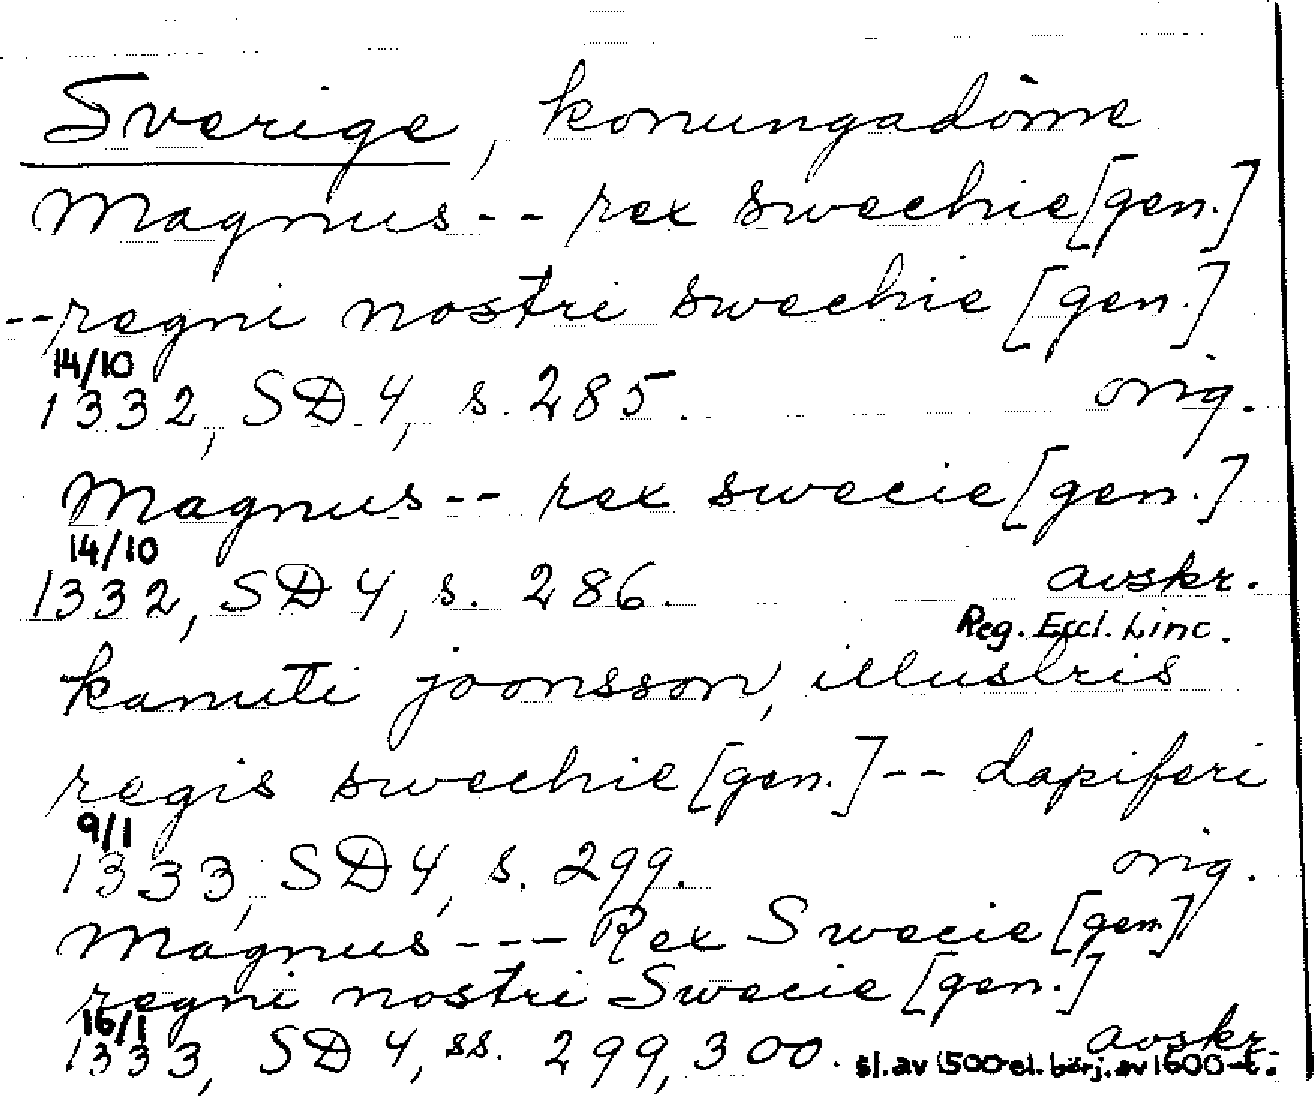 Sverige, konungadöme
Magnus -- rex swechie [gen.]
-- regni nostri swechie [gen.]
14/10
1332, SD 4, s. 285. orig.
Magnus -- rex swecie [gen.]
14/10
1332, SD 4, s. 286. avskr.
Reg. Eccl. Linc.
kanuti joonsson, illustris
regis swechie [gen.] -- dapiferi
9/1
1333, SD 4, s. 299. orig.
Magnus --- Rex Swecie [gen.]
regni nostri Swecie [gen.]
16/1
1333, SD 4, ss. 299, 300. avskr.
sl. av 1500 el. börj. av 1600-t.